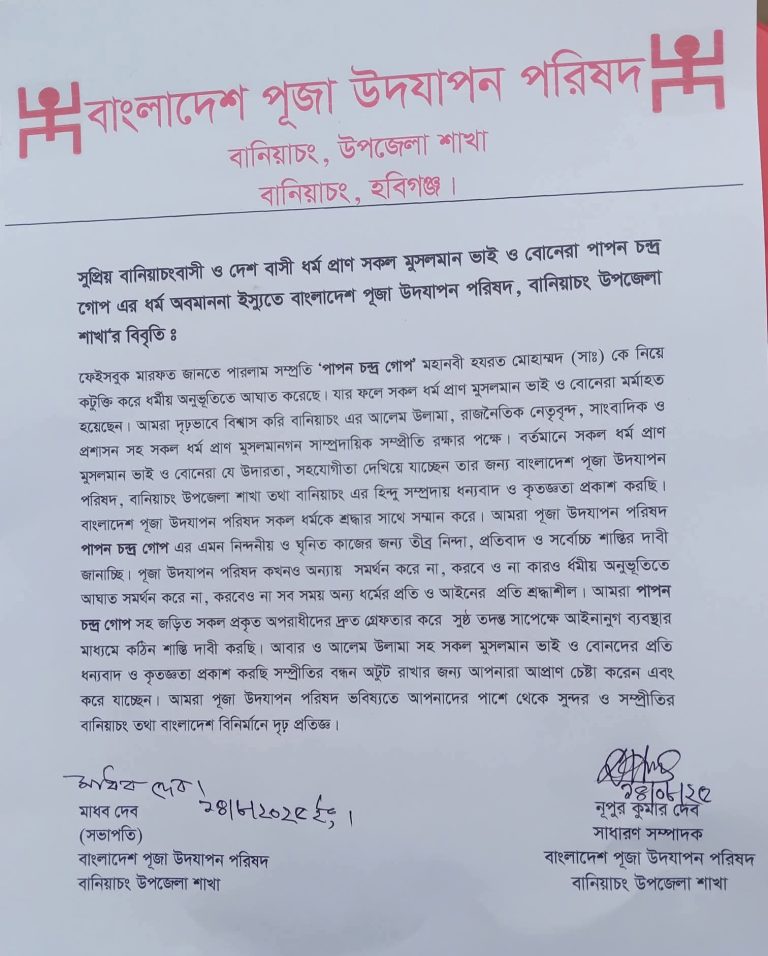 বাংলাদেশ পূজা উদযাপন পরিষদ
বানিয়াচং, উপজেলা শাখা
বানিয়াচং, হবিগঞ্জ।
সুপ্রিয় বানিয়াচংবাসী ও দেশ বাসী ধর্ম প্রাণ সকল মুসলমান ভাই ও বোনেরা পাপন চন্দ্র
গোপ এর ধর্ম অবমাননা ইস্যুতে বাংলাদেশ পূজা উদযাপন পরিষদ, বানিয়াচং উপজেলা
শাখা'র বিবৃতি ঃ
ফেইসবুক মারফত জানতে পারলাম সম্প্রতি 'পাপন চন্দ্র গোপ' মহানবী হযরত মোহাম্মদ (সাঃ) কে নিয়ে
কটুক্তি করে ধর্মীয় অনুভূতিতে আঘাত করেছে। যার ফলে সকল ধর্ম প্রাণ মুসলমান ভাই ও বোনেরা মর্মাহত
হয়েছেন। আমরা দৃঢ়ভাবে বিশ্বাস করি বানিয়াচং এর আলেম উলামা, রাজনৈতিক নেতৃবৃন্দ, সাংবাদিক ও
প্রশাসন সহ সকল ধর্ম প্রাণ মুসলমানগন সাম্প্রদায়িক সম্প্রীতি রক্ষার পক্ষে। বর্তমানে সকল ধর্ম প্রাণ
মুসলমান ভাই ও বোনেরা যে উদারতা, সহযোগীতা দেখিয়ে যাচ্ছেন তার জন্য বাংলাদেশ পূজা উদযাপন
পরিষদ, বানিয়াচং উপজেলা শাখা তথা বানিয়াচং এর হিন্দু সম্প্রদায় ধন্যবাদ ও কৃতজ্ঞতা প্রকাশ করছি।
বাংলাদেশ পূজা উদযাপন পরিষদ সকল ধর্মকে শ্রদ্ধার সাথে সম্মান করে। আমরা পূজা উদযাপন পরিষদ
পাপন চন্দ্র গোপ এর এমন নিন্দনীয় ও ঘৃনিত কাজের জন্য তীব্র নিন্দা, প্রতিবাদ ও সর্বোচ্চ শাস্তির দাবী
জানাচ্ছি। পূজা উদযাপন পরিষদ কখনও অন্যায় সমর্থন করে না, করবে ও না কারও ধর্মীয় অনুভূতিতে
আঘাত সমর্থন করে না, করবেও না সব সময় অন্য ধর্মের প্রতি ও আইনের প্রতি শ্রদ্ধাশীল। আমরা পাপন
চন্দ্র গোপ সহ জড়িত সকল প্রকৃত অপরাধীদের দ্রুত গ্রেফতার করে সুষ্ঠ তদন্ত সাপেক্ষে আইনানুগ ব্যবস্থার
মাধ্যমে কঠিন শাস্তি দাবী করছি। আবার ও আলেম উলামা সহ সকল মুসলমান ভাই ও বোনদের প্রতি
ধন্যবাদ ও কৃতজ্ঞতা প্রকাশ করছি সম্প্রীতির বন্ধন অটুট রাখার জন্য আপনারা আপ্রাণ চেষ্টা করেন এবং
করে যাচ্ছেন। আমরা পূজা উদযাপন পরিষদ ভবিষ্যতে আপনাদের পাশে থেকে সুন্দর ও সম্প্রীতির
বানিয়াচং তথা বাংলাদেশ বিনির্মানে দৃঢ় প্রতিজ্ঞ।
মাধব দেব।
২৪/৮/২০২৫ ইং।
মাধব দেব
(সভাপতি)
বাংলাদেশ পূজা উদযাপন পরিষদ
বানিয়াচং উপজেলা শাখা
২৪/০৮/২৫
নূপুর কুমার দেব
সাধারণ সম্পাদক
বাংলাদেশ পূজা উদযাপন পরিষদ
বানিয়াচং উপজেলা শাখা